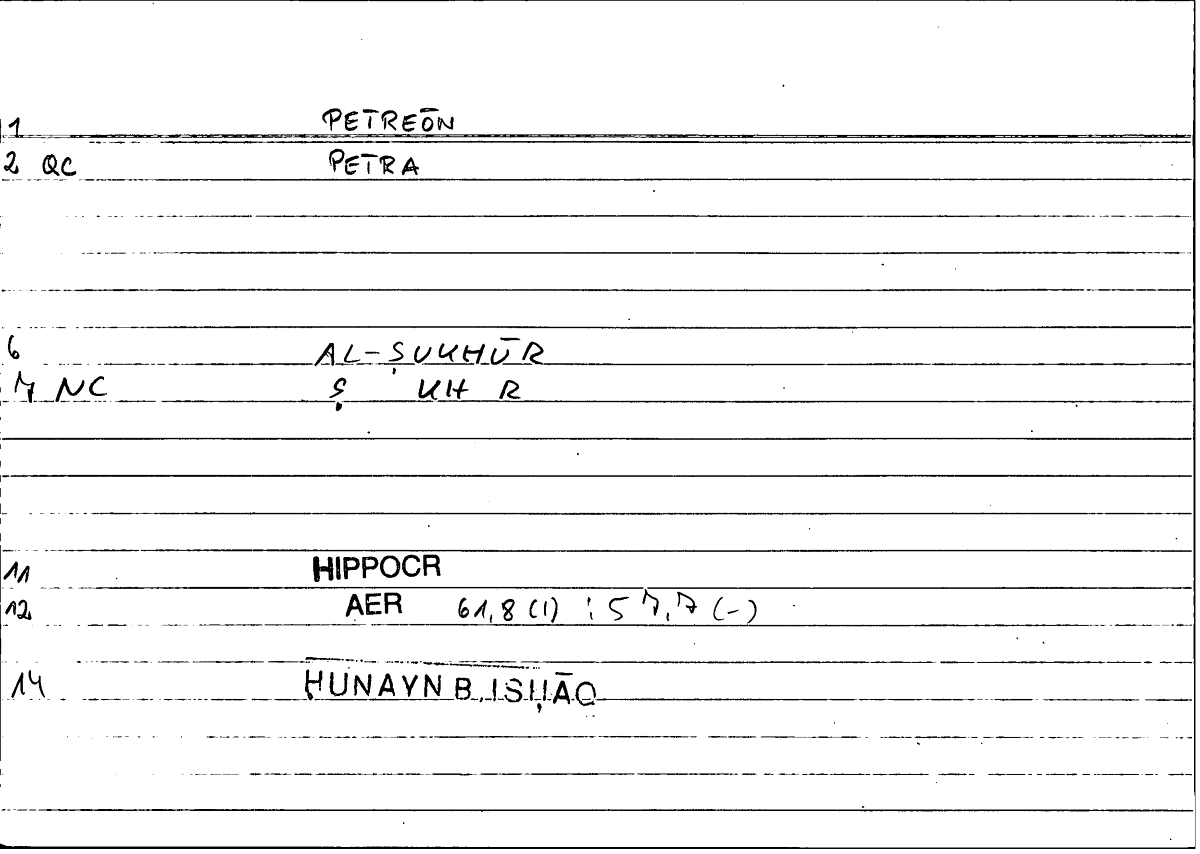 1 PETREŌN
2 QC PETRA
6 AL-ṢUKHŪR
7 NC Ṣ KH R
11 HIPPOCR
12 AER 61,8 (1) ; 57,7 (-)
14 ḤUNAYN B. ISḤĀQ